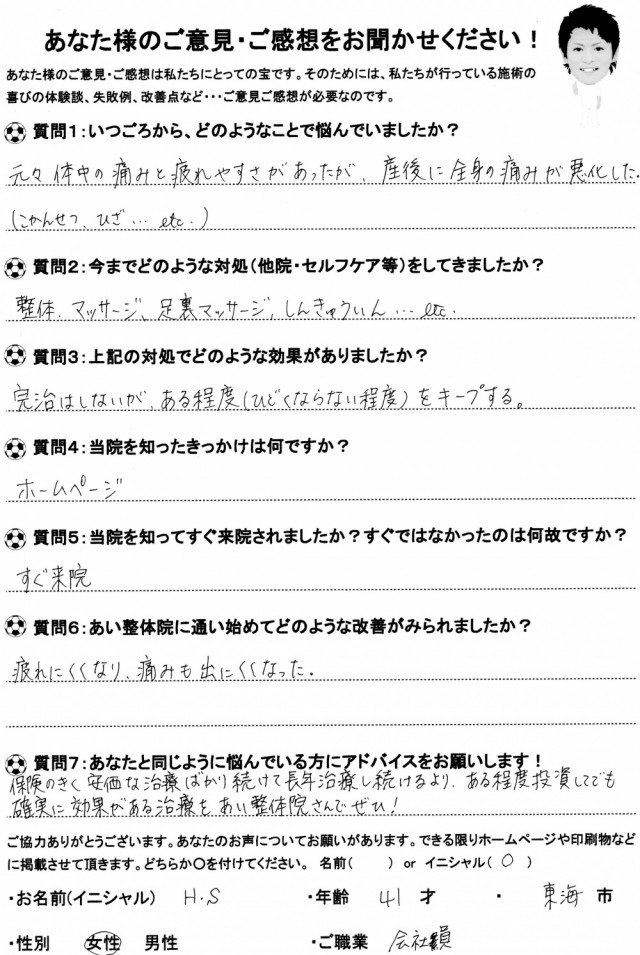 あなた様のご意見・ご感想をお聞かせください！
あなた様のご意見・ご感想は私たちにとっての宝です。そのためには、私たちが行っている施術の
喜びの体験談、失敗例、改善点など・・・ご意見ご感想が必要なのです。
質問１：いつごろから、どのようなことで悩んでいましたか？
元々体中の痛みと疲れやすさがあったが、産後に全身の痛みが悪化した。
(こかんせつ、ひざ… etc.)
質問２：今までどのような対処（他院・セルフケア等）をしてきましたか？
整体、マッサージ、足裏マッサージ、しんきゅういん…etc.
質問３：上記の対処でどのような効果がありましたか？
完治はしないが、ある程度(ひどくならない程度)をキープする。
質問４：当院を知ったきっかけは何ですか？
ホームページ
質問５：当院を知ってすぐ来院されましたか？すぐではなかったのは何故ですか？
すぐ来院
質問６：あい整体院に通い始めてどのような改善がみられましたか？
疲れにくくなり、痛みも出にくくなった。
質問７：あなたと同じように悩んでいる方にアドバイスをお願いします！
保険のきく安価な治療ばかり続けて長年治療し続けるより、ある程度投資してでも
確実に効果がある治療を、あい整体院さんでぜひ！
ご協力ありがとうございます。あなたのお声についてお願いがあります。できる限りホームページや印刷物など
に掲載させて頂きます。どちらか〇を付けてください。 名前（　　） or イニシャル（ 〇 ）
・お名前(イニシャル) H.S ・年齢 41 才 ・ 東海 市
・性別 女性 男性 ・ご職業 会社員